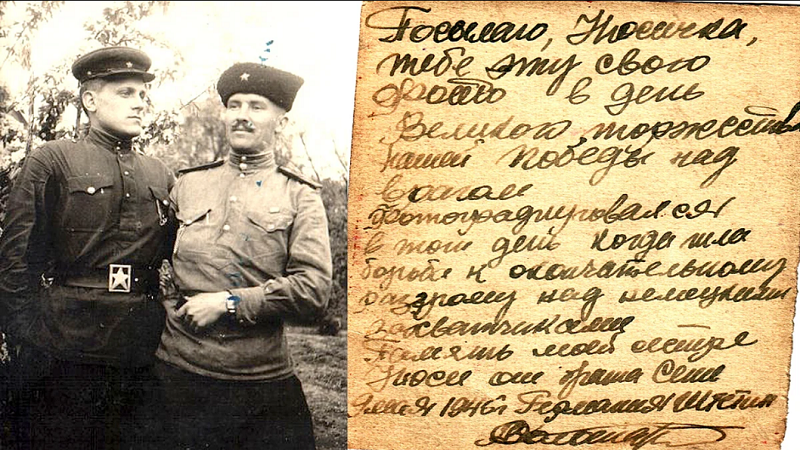 Посылаю, Нюсичка,
тебе эту свою
фото в день
Великого торжества
нашей Победы над
врагом
Фотографировался
в тот день когда шла
борьба к окончательному
разгрому над немецкими
захватчиками
Память моей сестре
Нюси от брата Сени
9 мая 1946г Германия Штетин